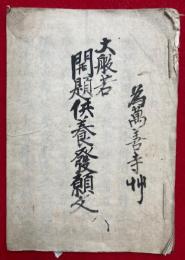 為萬善寺艸
大般若
開題供養發願文